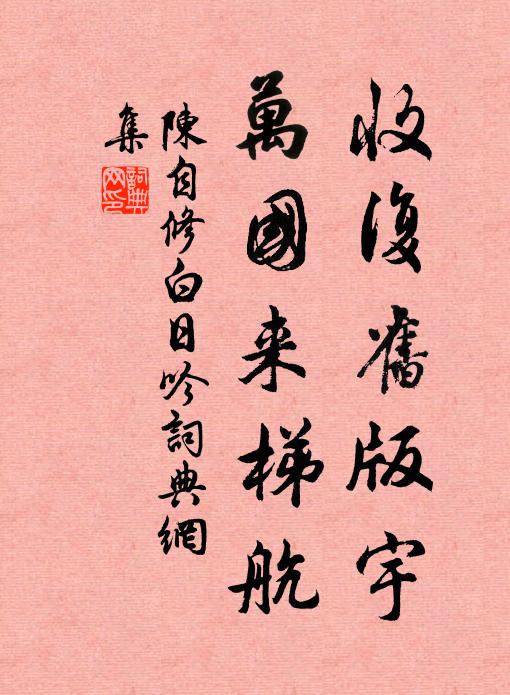 收復舊版宇
萬國来梯航
陳自修白日吟詞典網
集
詞典網印